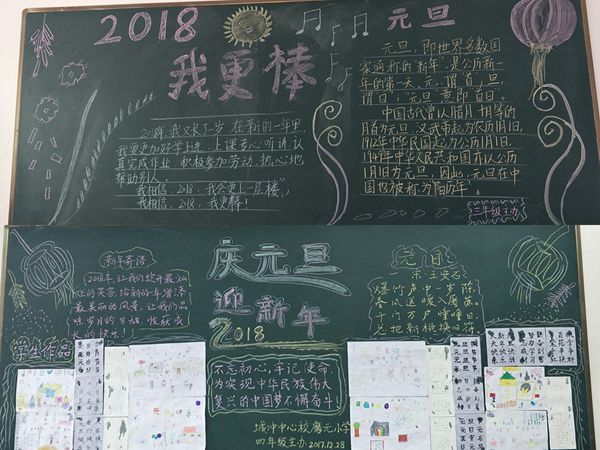 2018
我更棒
2018年,我又长了一岁,在新的一年里,
我要更加好学上进,上课专心听讲,认
真完成作业,积极参加劳动,热心地
帮助别人。
我相信,2018,我会更上一层楼,
我相信,2018,我更棒!
元旦
元旦,即世界多数国
家通称的“新年”,是公历新一
年的第一天。元,谓“首”,旦
谓“日”,“元旦”意即“首日”。
中国古代曾以腊月、
的月首为元旦,汉武帝起为农历1月1日,
1912年中华民国起为公历1月1日,
1949年中华人民共和国亦以公历
1月1日为元旦,因此,元旦在中
国也被称为“阳历年”
三年级主办
新年寄语
2018年,让我们绽开最
的笑容,给新的一年增添
最美丽的风景,让我们品
味岁月的甘甜,收获成
长的快乐。
学生作品
庆元旦
迎新年
2018
不忘初心,牢记使命,
为实现中华民族伟大
复兴的中国梦不懈奋斗!
元日
宋·王安石
爆竹声中一岁除,
春风送暖入屠苏。
千门万户曈曈日,
总把新桃换旧符。
城冲中心校磨元小学
四年级主办 2017.12.28